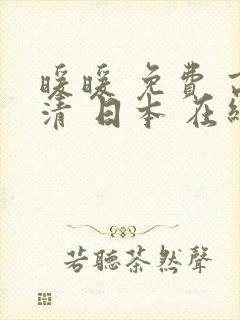 暖暖 免费
清 日本 在
若聽茶然聲